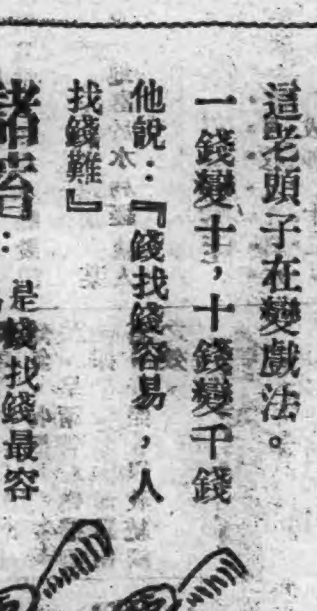 這老頭子在變戲法。
一錢變十，十錢變千錢
他說：『錢找錢容易，人
找錢難』
諸君：是錢找錢最容